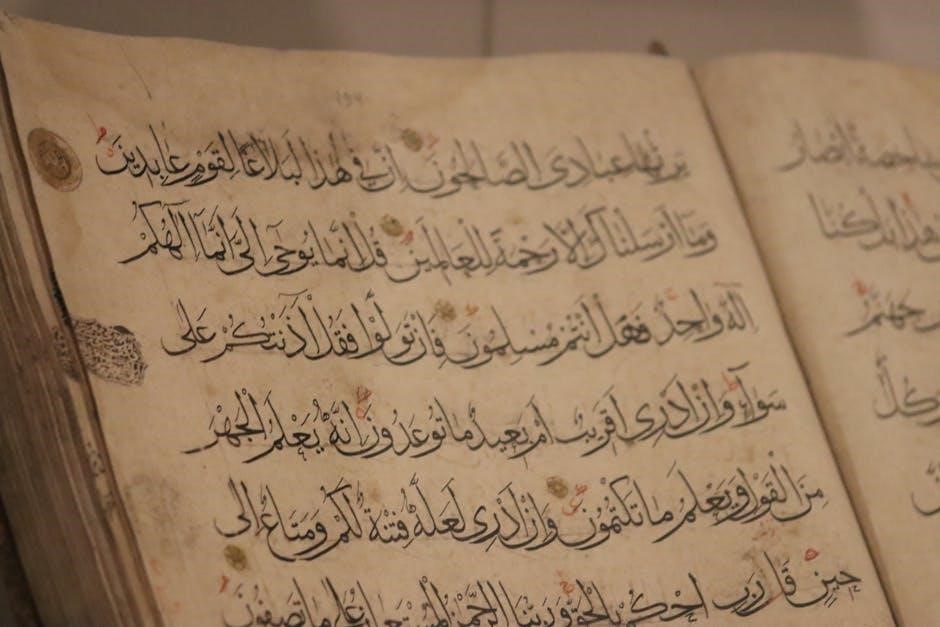 شَاخِصَةٌ أَبْصَارُ
هٰذَا بَلْ كُنَّا
جَهَنَّمَ
وَكُلٌّ
يَرِثُهَا عِبَادِىَ الصَّالِحُونَ اِنَّ فِى هٰذَا لَبَلَاغًا لِقَوْمٍ عَابِدِينَ
وَمَا اَرْسَلْنَاكَ اِلَّا رَحْمَةً لِلْعَالَمِينَ قُلْ اِنَّمَا يُوحَى اِلَىَّ اَنَّمَآ اِلٰهُكُمْ
اِلٰهٌ وَاحِدٌ فَهَلْ اَنْتُمْ مُسْلِمُونَ فَاِنْ تَوَلَّوْا فَقُلْ اٰذَنْتُكُمْ عَلَى
سَوَآءٍ وَاِنْ اَدْرِى اَقَرِيبٌ اَمْ بَعِيدٌ مَا تُوعَدُونَ اِنَّهُ يَعْلَمُ الْجَهْرَ
مِنَ الْقَوْلِ وَيَعْلَمُ مَا تَكْتُمُونَ وَاِنْ اَدْرِى لَعَلَّهُ فِتْنَةٌ لَكُمْ وَمَتَاعٌ اِلَى
حِينٍ قَالَ رَبِّ احْكُمْ بِالْحَقِّ وَرَبُّنَا الرَّحْمٰنُ الْمُسْتَعَانُ عَلَى مَا تَصِفُونَ